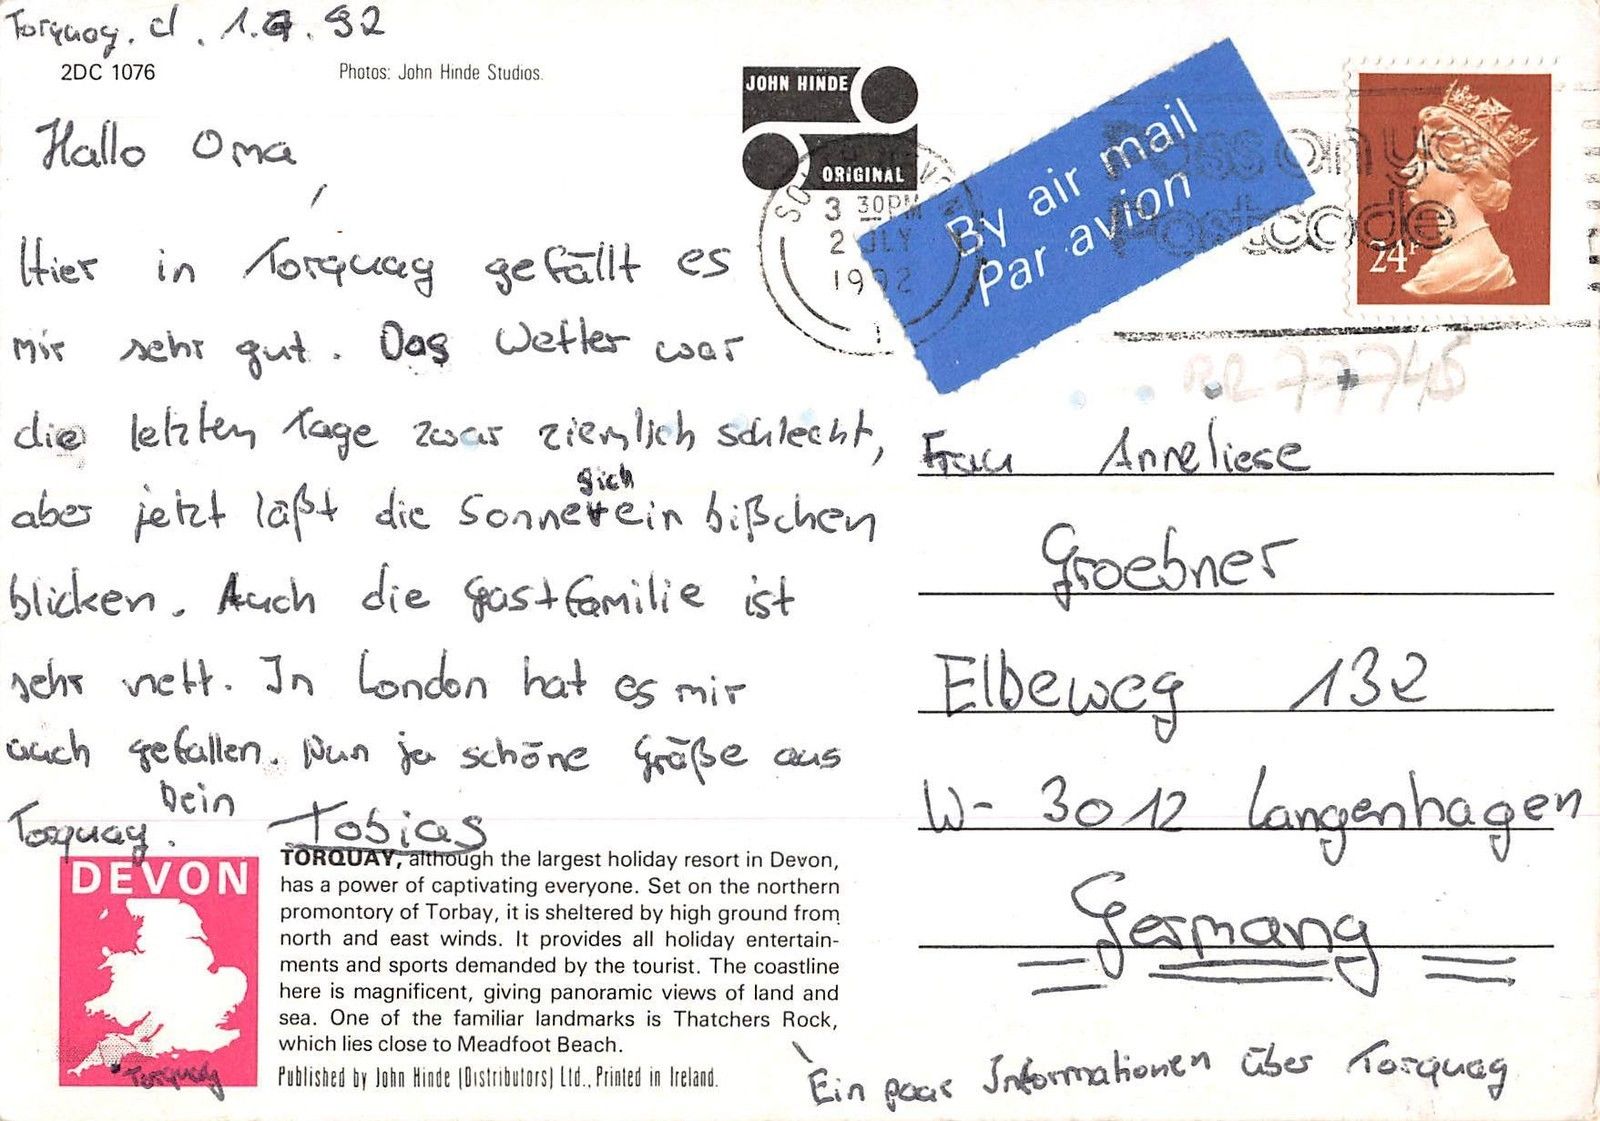 Torquay, d. 1.7.92
2DC 1076
Photos: John Hinde Studios.
Hallo Oma,
Hier in Torquay gefällt es
mir sehr gut. Das Wetter war
die letzten Tage zwar ziemlich schlecht,
aber jetzt läßt die Sonne sich ein bißchen
blicken. Auch die Gastfamilie ist
sehr nett. In London hat es mir
auch gefallen. Nun ja schöne Grüße aus
Torquay. Dein Tobias
DEVON
Torquay
TORQUAY, although the largest holiday resort in Devon,
has a power of captivating everyone. Set on the northern
promontory of Torbay, it is sheltered by high ground from
north and east winds. It provides all holiday entertain-
ments and sports demanded by the tourist. The coastline
here is magnificent, giving panoramic views of land and
sea. One of the familiar landmarks is Thatchers Rock,
which lies close to Meadfoot Beach.
Published by John Hinde (Distributors) Ltd., Printed in Ireland.
JOHN HINDE
ORIGINAL
3 30PM
2 JLY
1992
By air mail
Par avion
Pass on yo
Postcode
24P
77745
Frau Anneliese
Groebner
Elbeweg 132
W- 3012 Langenhagen
Germany
Ein paar Informationen über Torquay